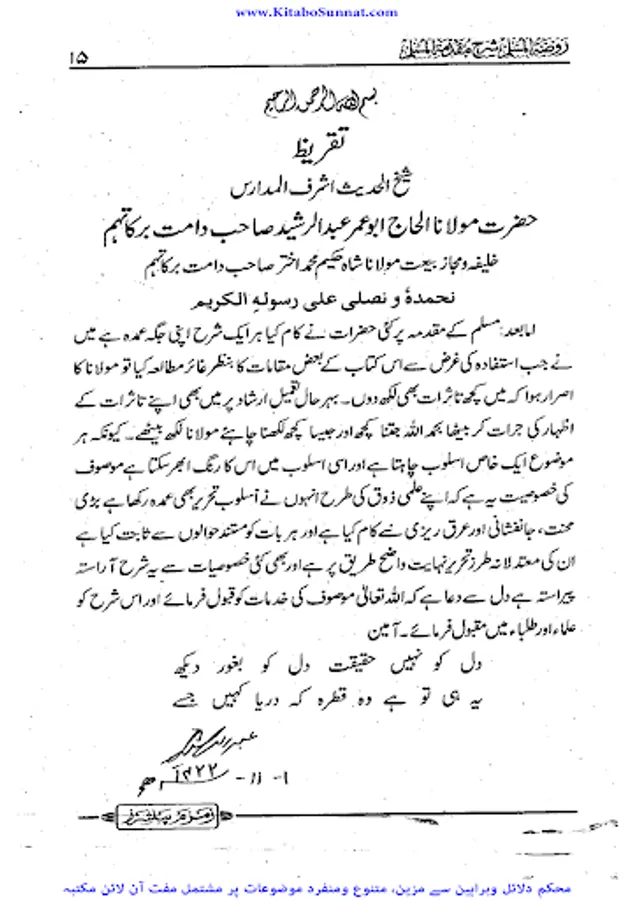 www.KitaboSunnat.com
روضۃ المسلم شرح مقدمۃ المسلم
۱۵
بسم اللہ الرحمن الرحیم
تقریظ
شیخ الحدیث اشرف المدارس
حضرت مولانا الحاج ابو عمر عبدالرشید صاحب دامت برکاتہم
خلیفہ و مجاز بیعت مولانا شاہ حکیم محمد اختر صاحب دامت برکاتہم
نحمدہٗ و نصلی علی رسولہ الکریم
امابعد: مسلم کے مقدمہ پر کئی حضرات نے کام کیا ہر ایک شرح اپنی جگہ عمدہ ہے میں
نے جب استفادہ کی غرض سے اس کتاب کے بعض مقامات کا بنظر غائر مطالعہ کیا تو مولانا کا
اصرار ہوا کہ میں کچھ تاثرات بھی لکھ دوں۔ بہر حال تعمیل ارشاد پر میں بھی اپنے تاثرات کے
اظہار کی جرات کر بیٹھا بحمد اللہ جتنا کچھ اور جیسا کچھ لکھنا چاہئے مولانا لکھ بیٹھے۔ کیونکہ ہر
موضوع ایک خاص اسلوب چاہتا ہے اور اسی اسلوب میں اس کا رنگ ابھر سکتا ہے موصوف
کی خصوصیت یہ ہے کہ اپنے علمی ذوق کی طرح انہوں نے اسلوب تحریر بھی عمدہ رکھا ہے بڑی
محنت، جانفشانی اور عرق ریزی سے کام کیا ہے اور ہر بات کو مستند حوالوں سے ثابت کیا ہے
ان کی معتدلانہ طرز تحریر نہایت واضح طریق پر ہے اور بھی کئی خصوصیات سے یہ شرح آراستہ
پیراستہ ہے دل سے دعا ہے کہ اللہ تعالیٰ موصوف کی خدمات کو قبول فرمائے اور اس شرح کو
علماء اور طلباء میں مقبول فرمائے۔ آمین
دل کو نہیں حقیقت دل کو بغور دیکھ
یہ ہی تو ہے وہ قطرہ کہ دریا کہیں جسے
۱-۱۱-۱۴۲۲ھ
زمزم پبلشرز
محکم دلائل وبراہین سے مزین، متنوع ومنفرد موضوعات پر مشتمل مفت آن لائن مکتبہ